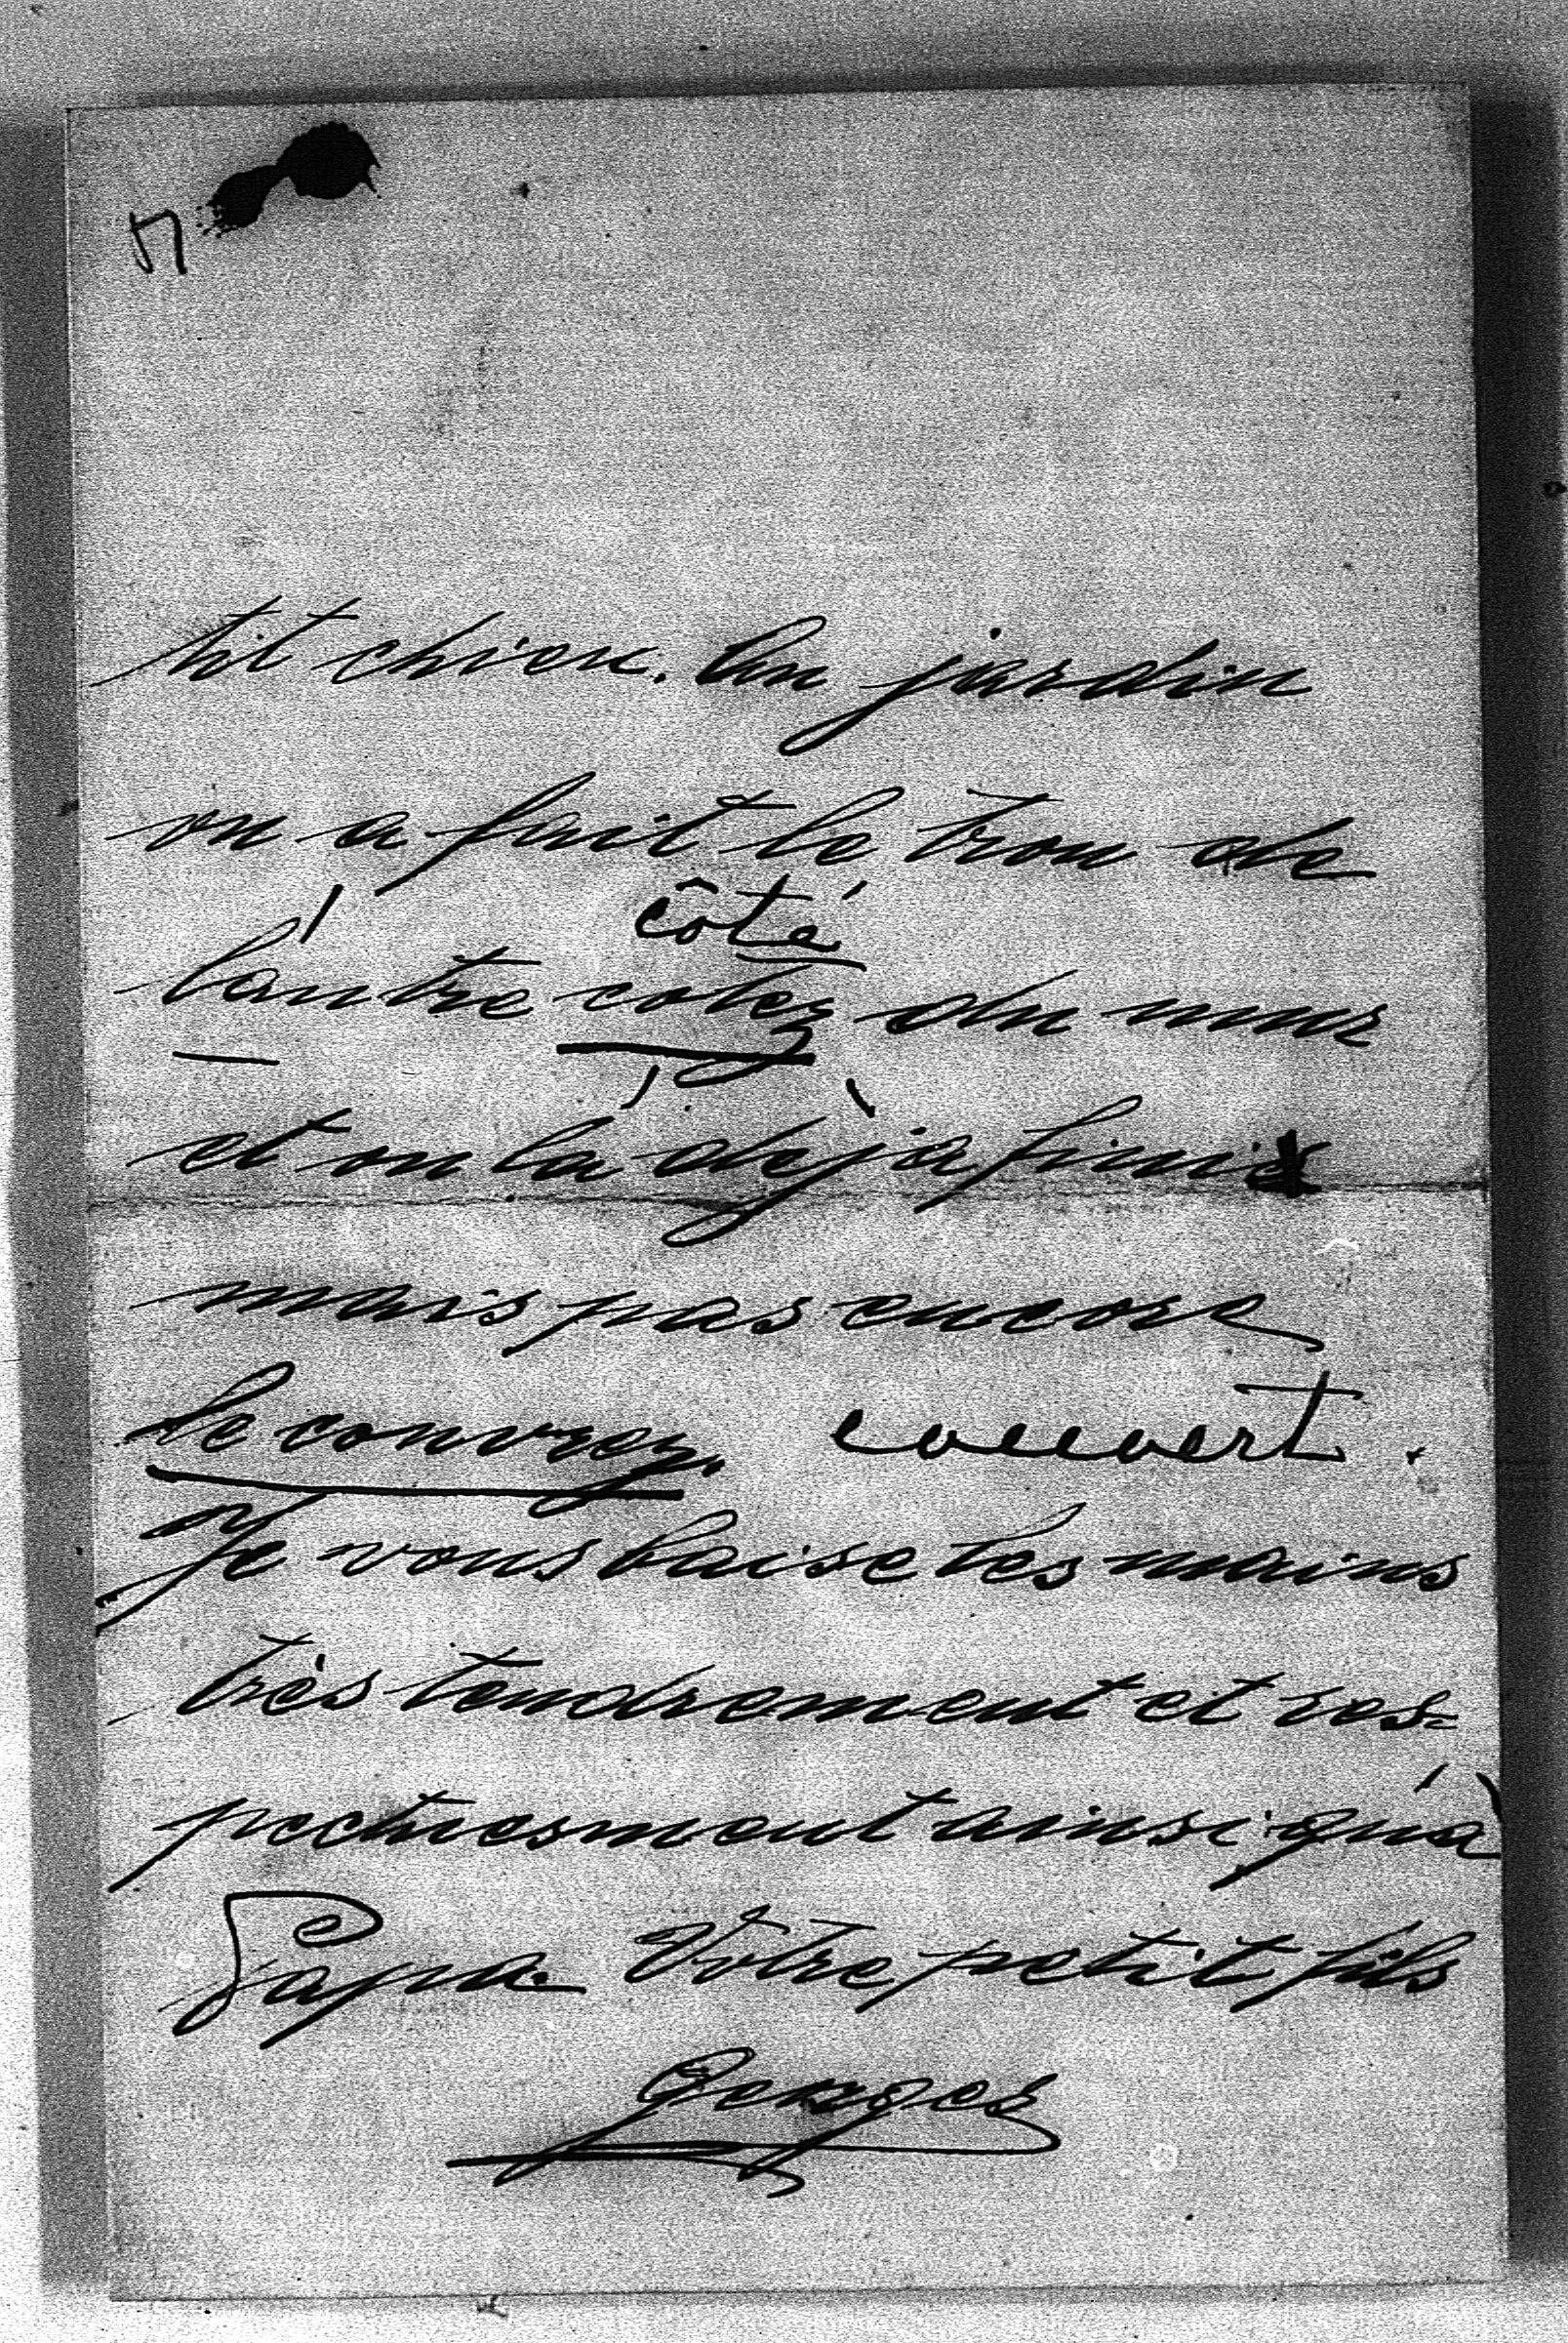 57
tit chien. Au jardin
on a fait le trou de
côté
l'autre cotez du mur
et on l'a dejà finie
mais pas encore
le couvrez. couvert.
Je vous baise les mains
très tendrement et res=
pectuesment ainsi qu'à
Papa. Votre petit fils
Georges